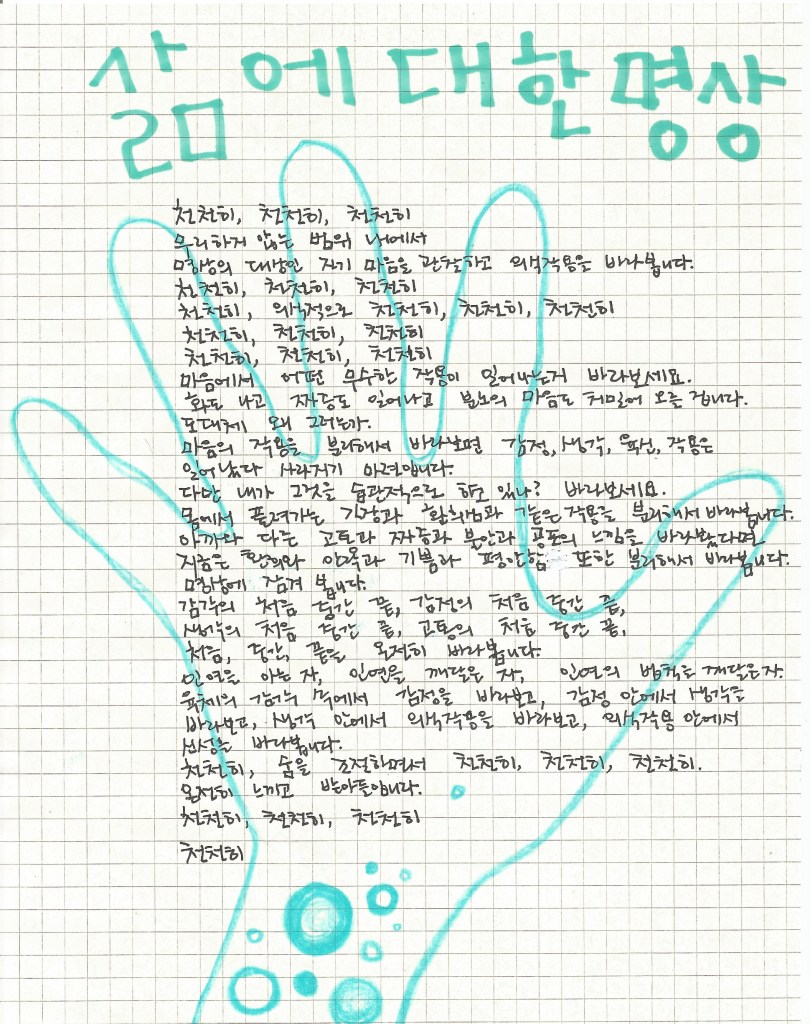 삶에 대한 명상
천천히, 천천히, 천천히
무리하게 않는 범위 내에서
명상의 대상인 자기 마음을 관찰하고 의식작용을 바라봅니다.
천천히, 천천히, 천천히
천천히, 의식적으로 천천히, 천천히, 천천히
천천히, 천천히, 천천히
천천히, 천천히, 천천히
마음에서 어떤 무수한 작용이 일어나는가 바라보세요.
화도 나고 짜증도 일어나고 분노의 마음도 치밀어 오를 겁니다.
도대체 왜 그러는가.
마음의 작용을 분리해서 바라보면 감정, 생각, 욕심, 작용은
일어났다 사라지기 마련입니다.
다만 내가 그것을 습관적으로 하고 있나? 바라보세요.
몸에서 풀려가는 긴장과 황희심과 같은 작용을 분리해서 바라봅니다.
아까와 다른 고통과 짜증과 불안과 공포의 느낌을 바라봤다면
지금은 환희와 안락과 기쁨과 평안함 또한 분리해서 바라봅니다.
명상에 잠겨 봅니다.
감각의 처음 중간 끝, 감정의 처음 중간 끝,
생각의 처음 중간 끝, 고통의 처음 중간 끝,
처음, 중간, 끝을 온전히 바라봅니다.
인연을 아는 자, 인연을 깨달은 자, 인연의 법칙을 깨달은 자.
육체의 감각 속에서 감정을 바라보고, 감정 안에서 생각을
바라보고, 생각 안에서 의식작용을 바라보고, 의식작용 안에서
심성을 바라봅니다.
천천히, 숨을 조절하면서 천천히, 천천히, 천천히.
온전히 느끼고 받아들입니다.
천천히, 천천히, 천천히
천천히